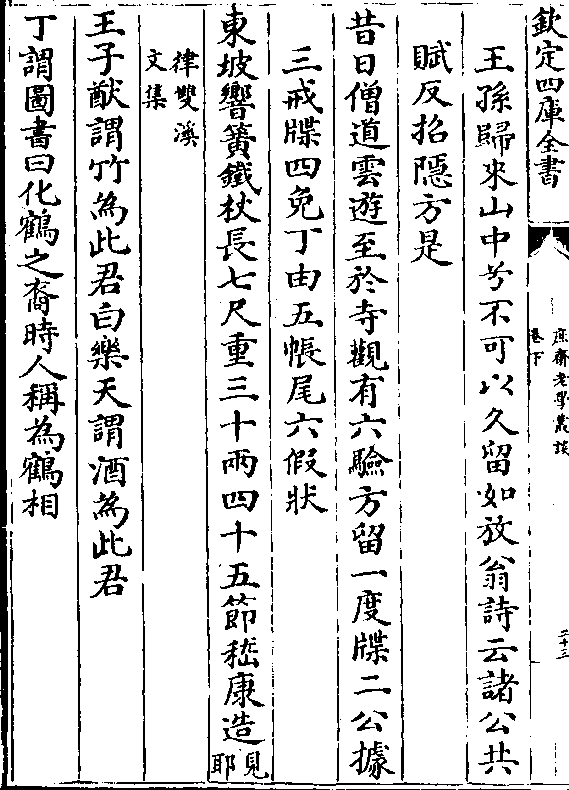 欽定四庫全書
庶齋老學叢談
卷下
二十三
王孫歸來山中兮不可以久留如放翁詩云諸公共
賦反招隠方是
昔日僧道雲遊至於寺觀有六驗方留一度牒二公據
三戒牒四免丁由五帳尾六假狀
東坡響簧鐵杖長七尺重三十兩四十五節嵇康造見耶
律雙溪
文集
王子猷謂竹為此君白樂天謂酒為此君
丁謂圖書曰化鶴之裔時人稱為鶴相